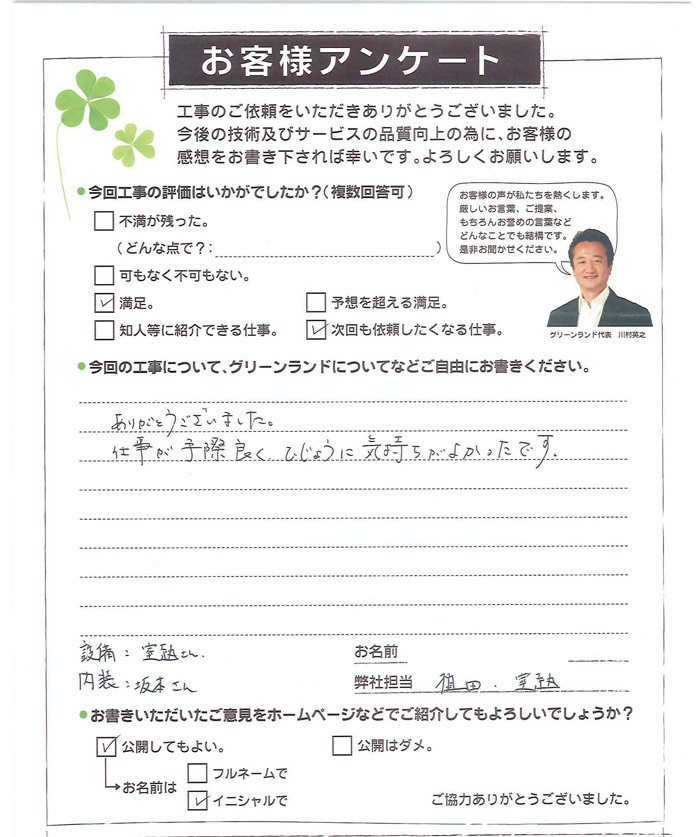 お客様アンケート
工事のご依頼をいただきありがとうございました。
今後の技術及びサービスの品質向上の為に、お客様の
感想をお書き下されば幸いです。よろしくお願いします。
●今回工事の評価はいかがでしたか?(複数回答可)
不満が残った。
(どんな点で?: )
可もなく不可もない。
満足。 予想を超える満足。
知人等に紹介できる仕事。 次回も依頼したくなる仕事。
お客様の声が私たちを熱くします。
厳しいお言葉、ご提案、
もちろんお誉めの言葉など
どんなことでも結構です。
是非お聞かせください。
グリーンランド代表 川村英之
●今回の工事について、グリーンランドについてなどご自由にお書きください。
ありがとうございました。
仕事が手際良く、ひじょうに気持ちがよかったです。
設備: さん.
内装:坂本さん
お名前
弊社担当 植田.
●お書きいただいたご意見をホームページなどでご紹介してもよろしいでしょうか?
公開してもよい。 公開はダメ。
お名前は
フルネームで
イニシャルで
ご協力ありがとうございました。